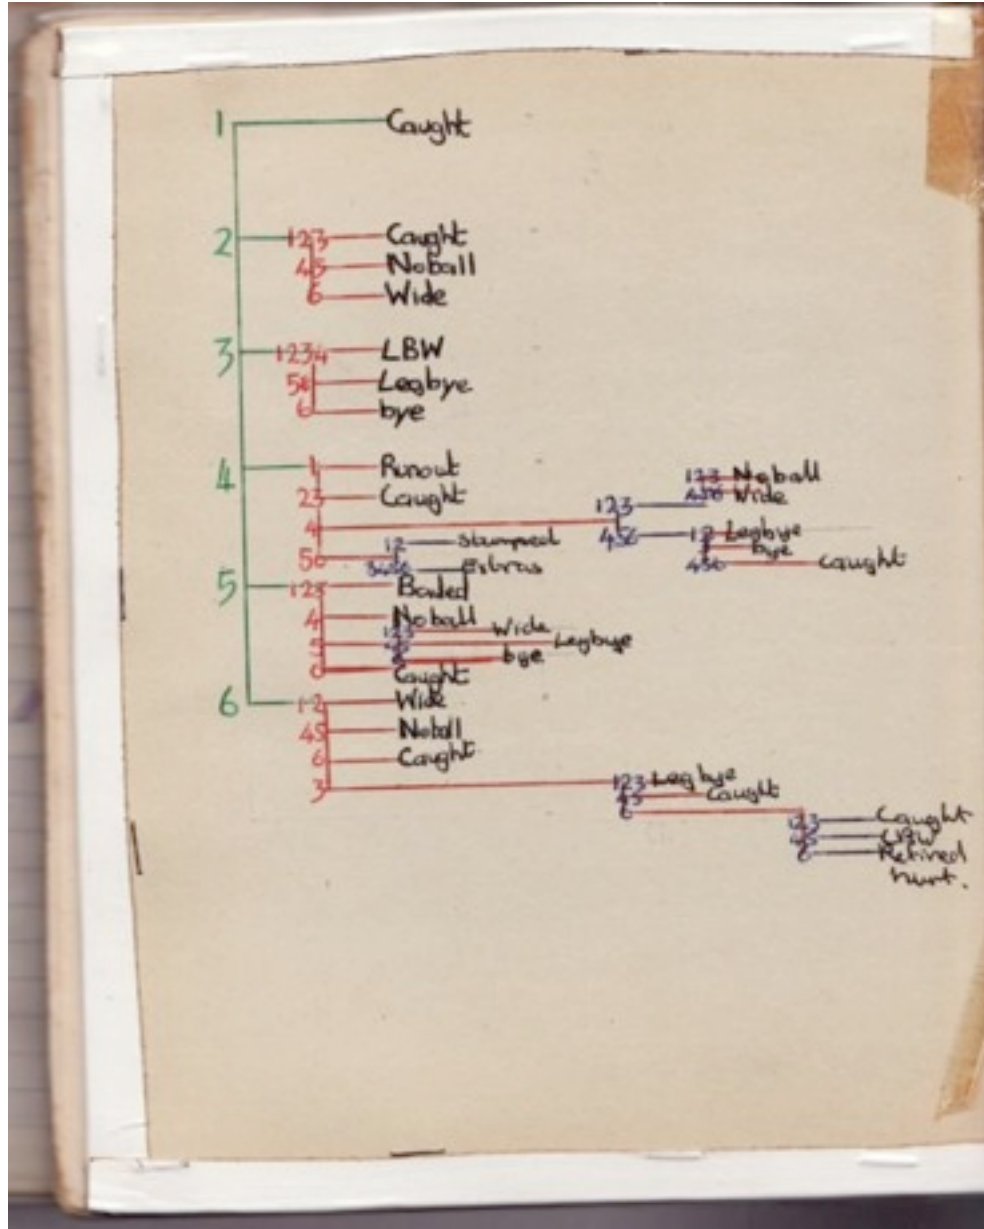 1 Caught
2 123 Caught
45 Noball
6 Wide
3 1234 LBW
5 Legbye
6 bye
4 1 Runout
23 Caught
4 123 123 Noball
456 Wide
456 12 Legbye
bye
456 Caught
56 12 Stumped
3456 Extras
5 123 Bowled
4 Noball
5 123 Wide
45 Legbye
6 bye
6 Caught
6 12 Wide
45 Noball
6 Caught
3 123 Legbye
45 Caught
6 123 Caught
45 LBW
6 Retired
hurt.